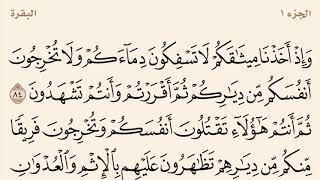 الجزء ١ البقرة
وَإِذْ أَخَذْنَا مِيثَٰقَكُمْ لَا تَسْفِكُونَ دِمَآءَكُمْ وَلَا تُخْرِجُونَ
أَنفُسَكُم مِّن دِيَٰرِكُمْ ثُمَّ أَقْرَرْتُمْ وَأَنتُمْ تَشْهَدُونَ ٨٤
ثُمَّ أَنتُمْ هَٰٓؤُلَآءِ تَقْتُلُونَ أَنفُسَكُمْ وَتُخْرِجُونَ فَرِيقًا
مِّنكُم مِّن دِيَٰرِهِمْ تَظَٰهَرُونَ عَلَيْهِم بِٱلْإِثْمِ وَٱلْعُدْوَٰنِ